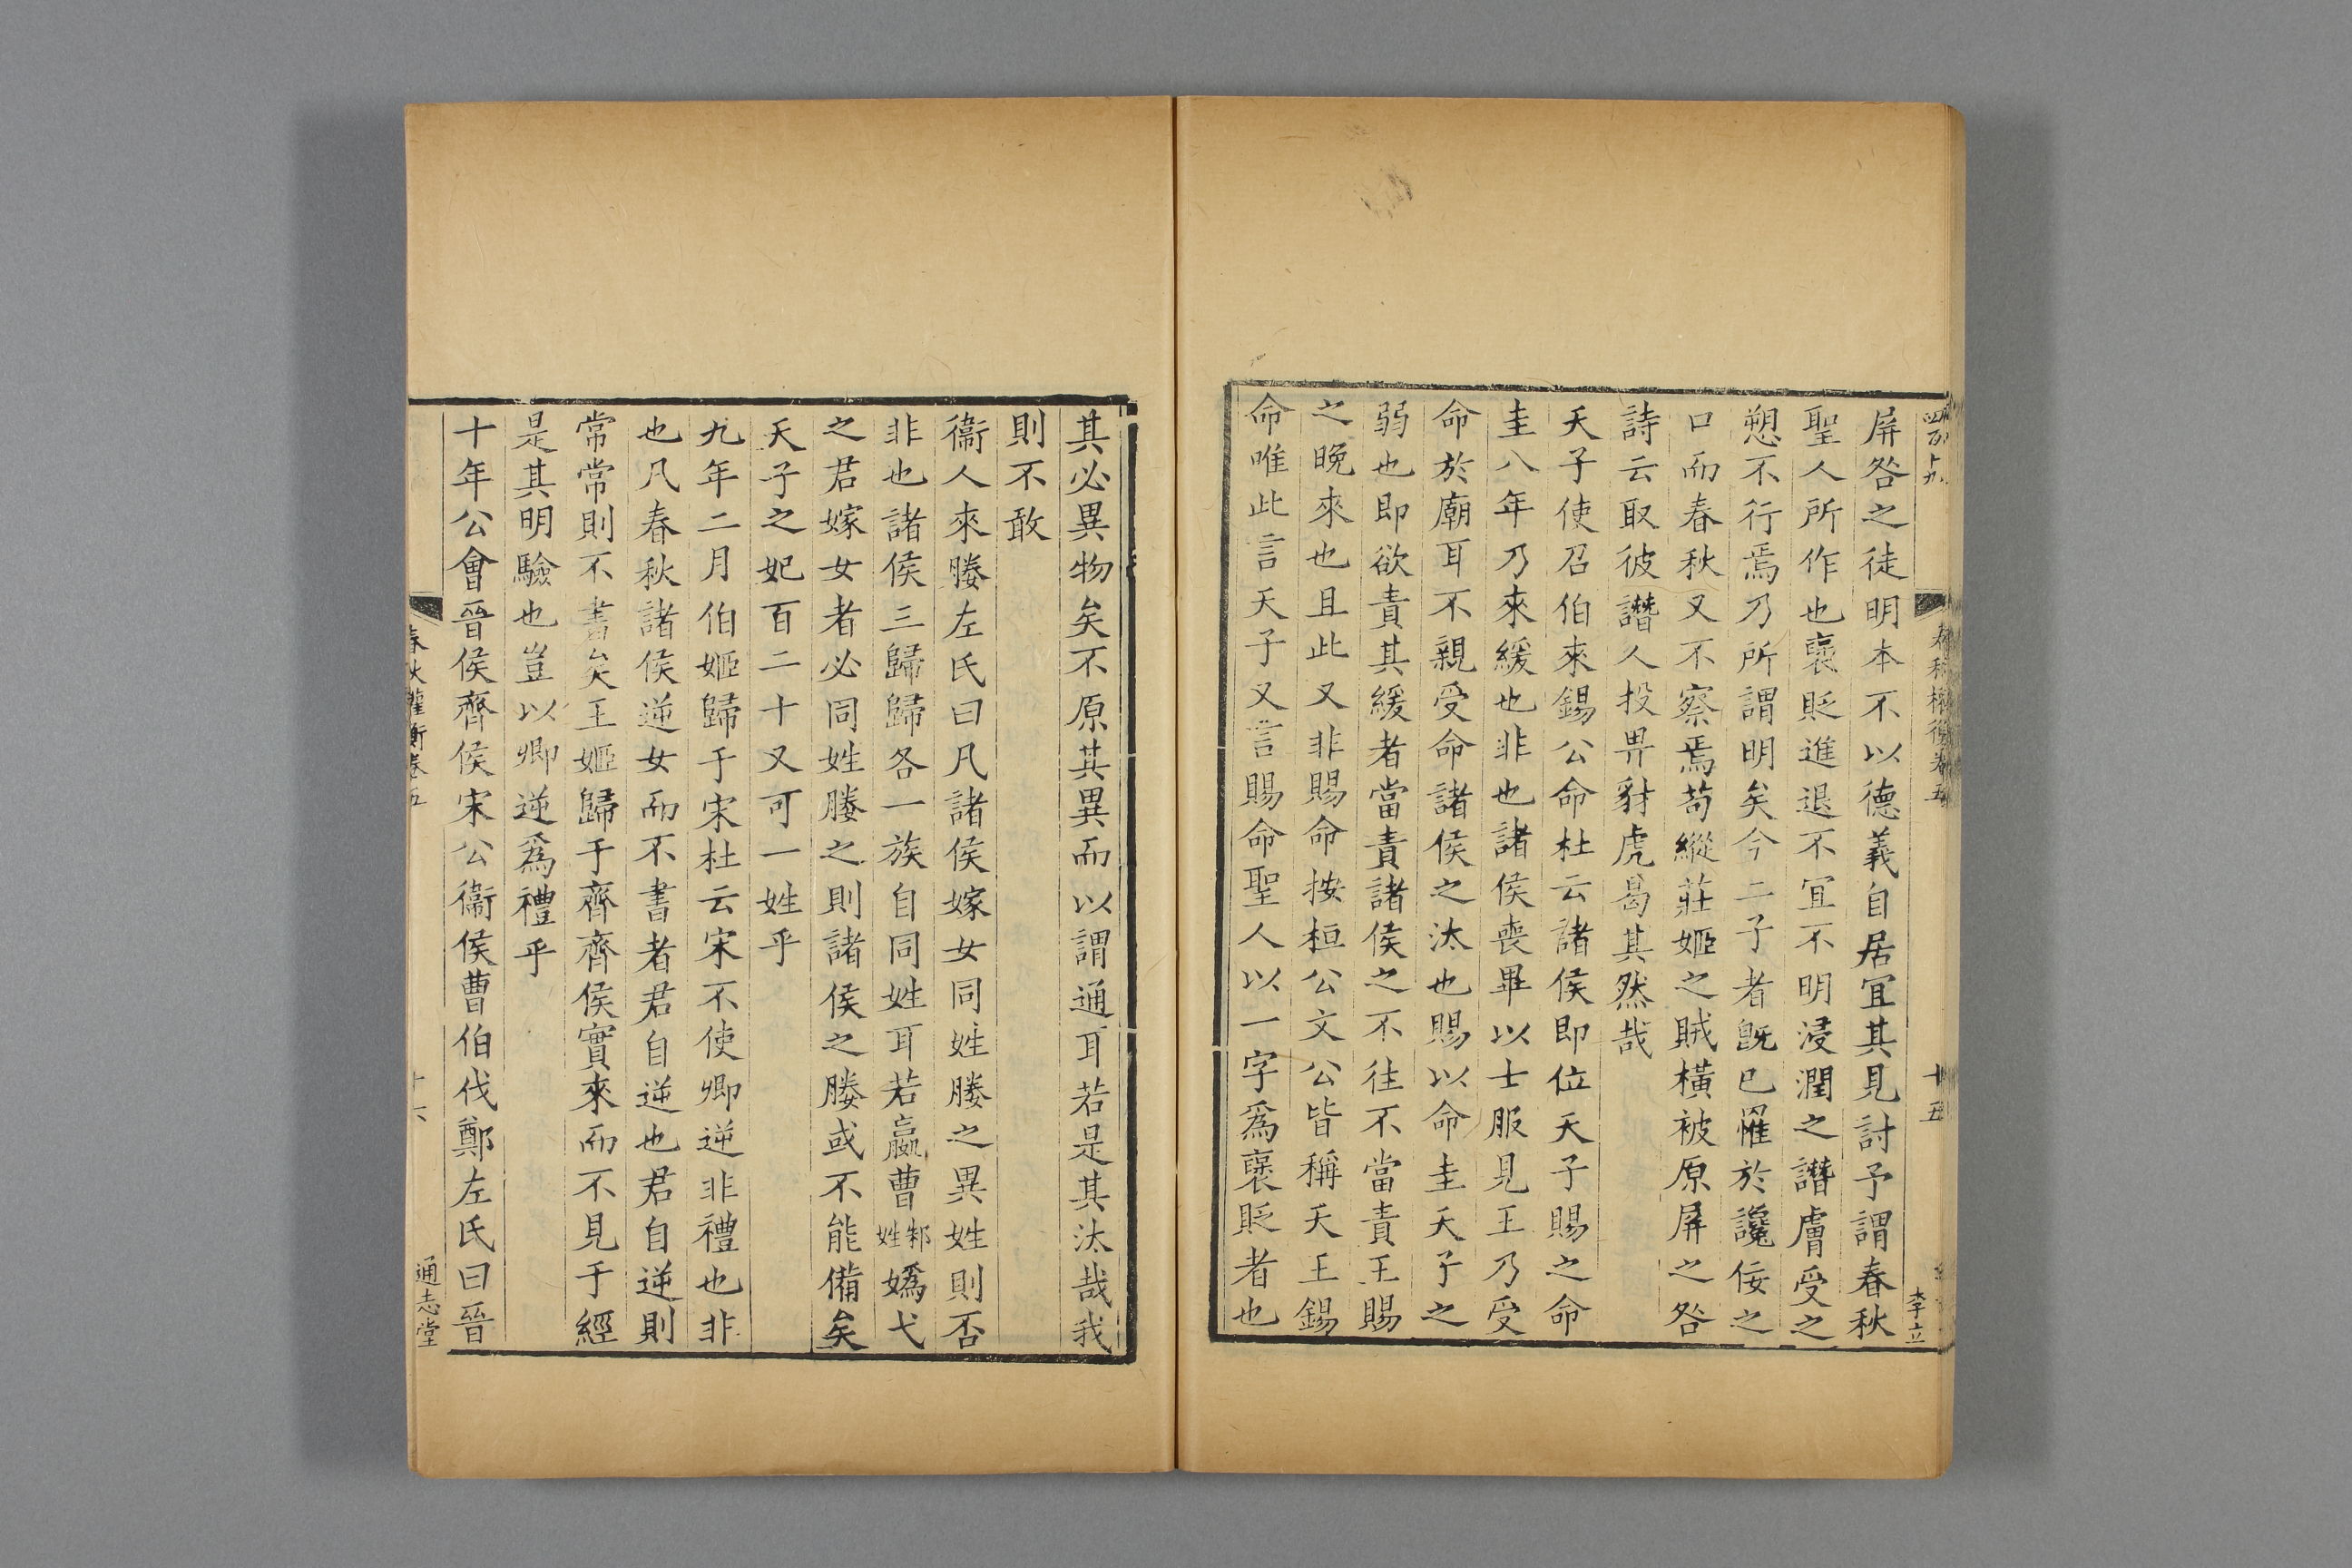 四百十九
春秋權衡卷五
十五
李立
屏咎之徒明本不以德義自居宜其見討予謂春秋
聖人所作也襃貶進退不宜不明浸潤之譖膚受之
愬不行焉乃所謂明矣今二子者旣已罹於讒佞之
口而春秋又不察焉苟縱莊姬之賊橫被原屏之咎
詩云取彼譖人投畀豺虎曷其然哉
天子使召伯來錫公命杜云諸侯即位天子賜之命
圭八年乃來緩也非也諸侯喪畢以士服見王乃受
命於廟耳不親受命諸侯之汰也賜以命圭天子之
弱也即欲責其緩者當責諸侯之不往不當責王賜
之晚來也且此又非賜命按桓公文公皆稱天王錫
命唯此言天子又言賜命聖人以一字爲襃貶者也
其必異物矣不原其異而以謂通耳若是其汰哉我
則不敢
衞人來媵左氏曰凡諸侯嫁女同姓媵之異姓則否
非也諸侯三歸歸各一族自同姓耳若嬴曹邾姓嬀弋
之君嫁女者必同姓媵之則諸侯之媵或不能備矣
天子之妃百二十又可一姓乎
九年二月伯姬歸于宋杜云宋不使卿逆非禮也非
也凡春秋諸侯逆女而不書者君自逆也君自逆則
常常則不書矣王姬歸于齊齊侯實來而不見于經
是其明驗也豈以卿逆爲禮乎
十年公會晉侯齊侯宋公衞侯曹伯伐鄭左氏曰晉
春秋權衡卷五
十六
通志堂